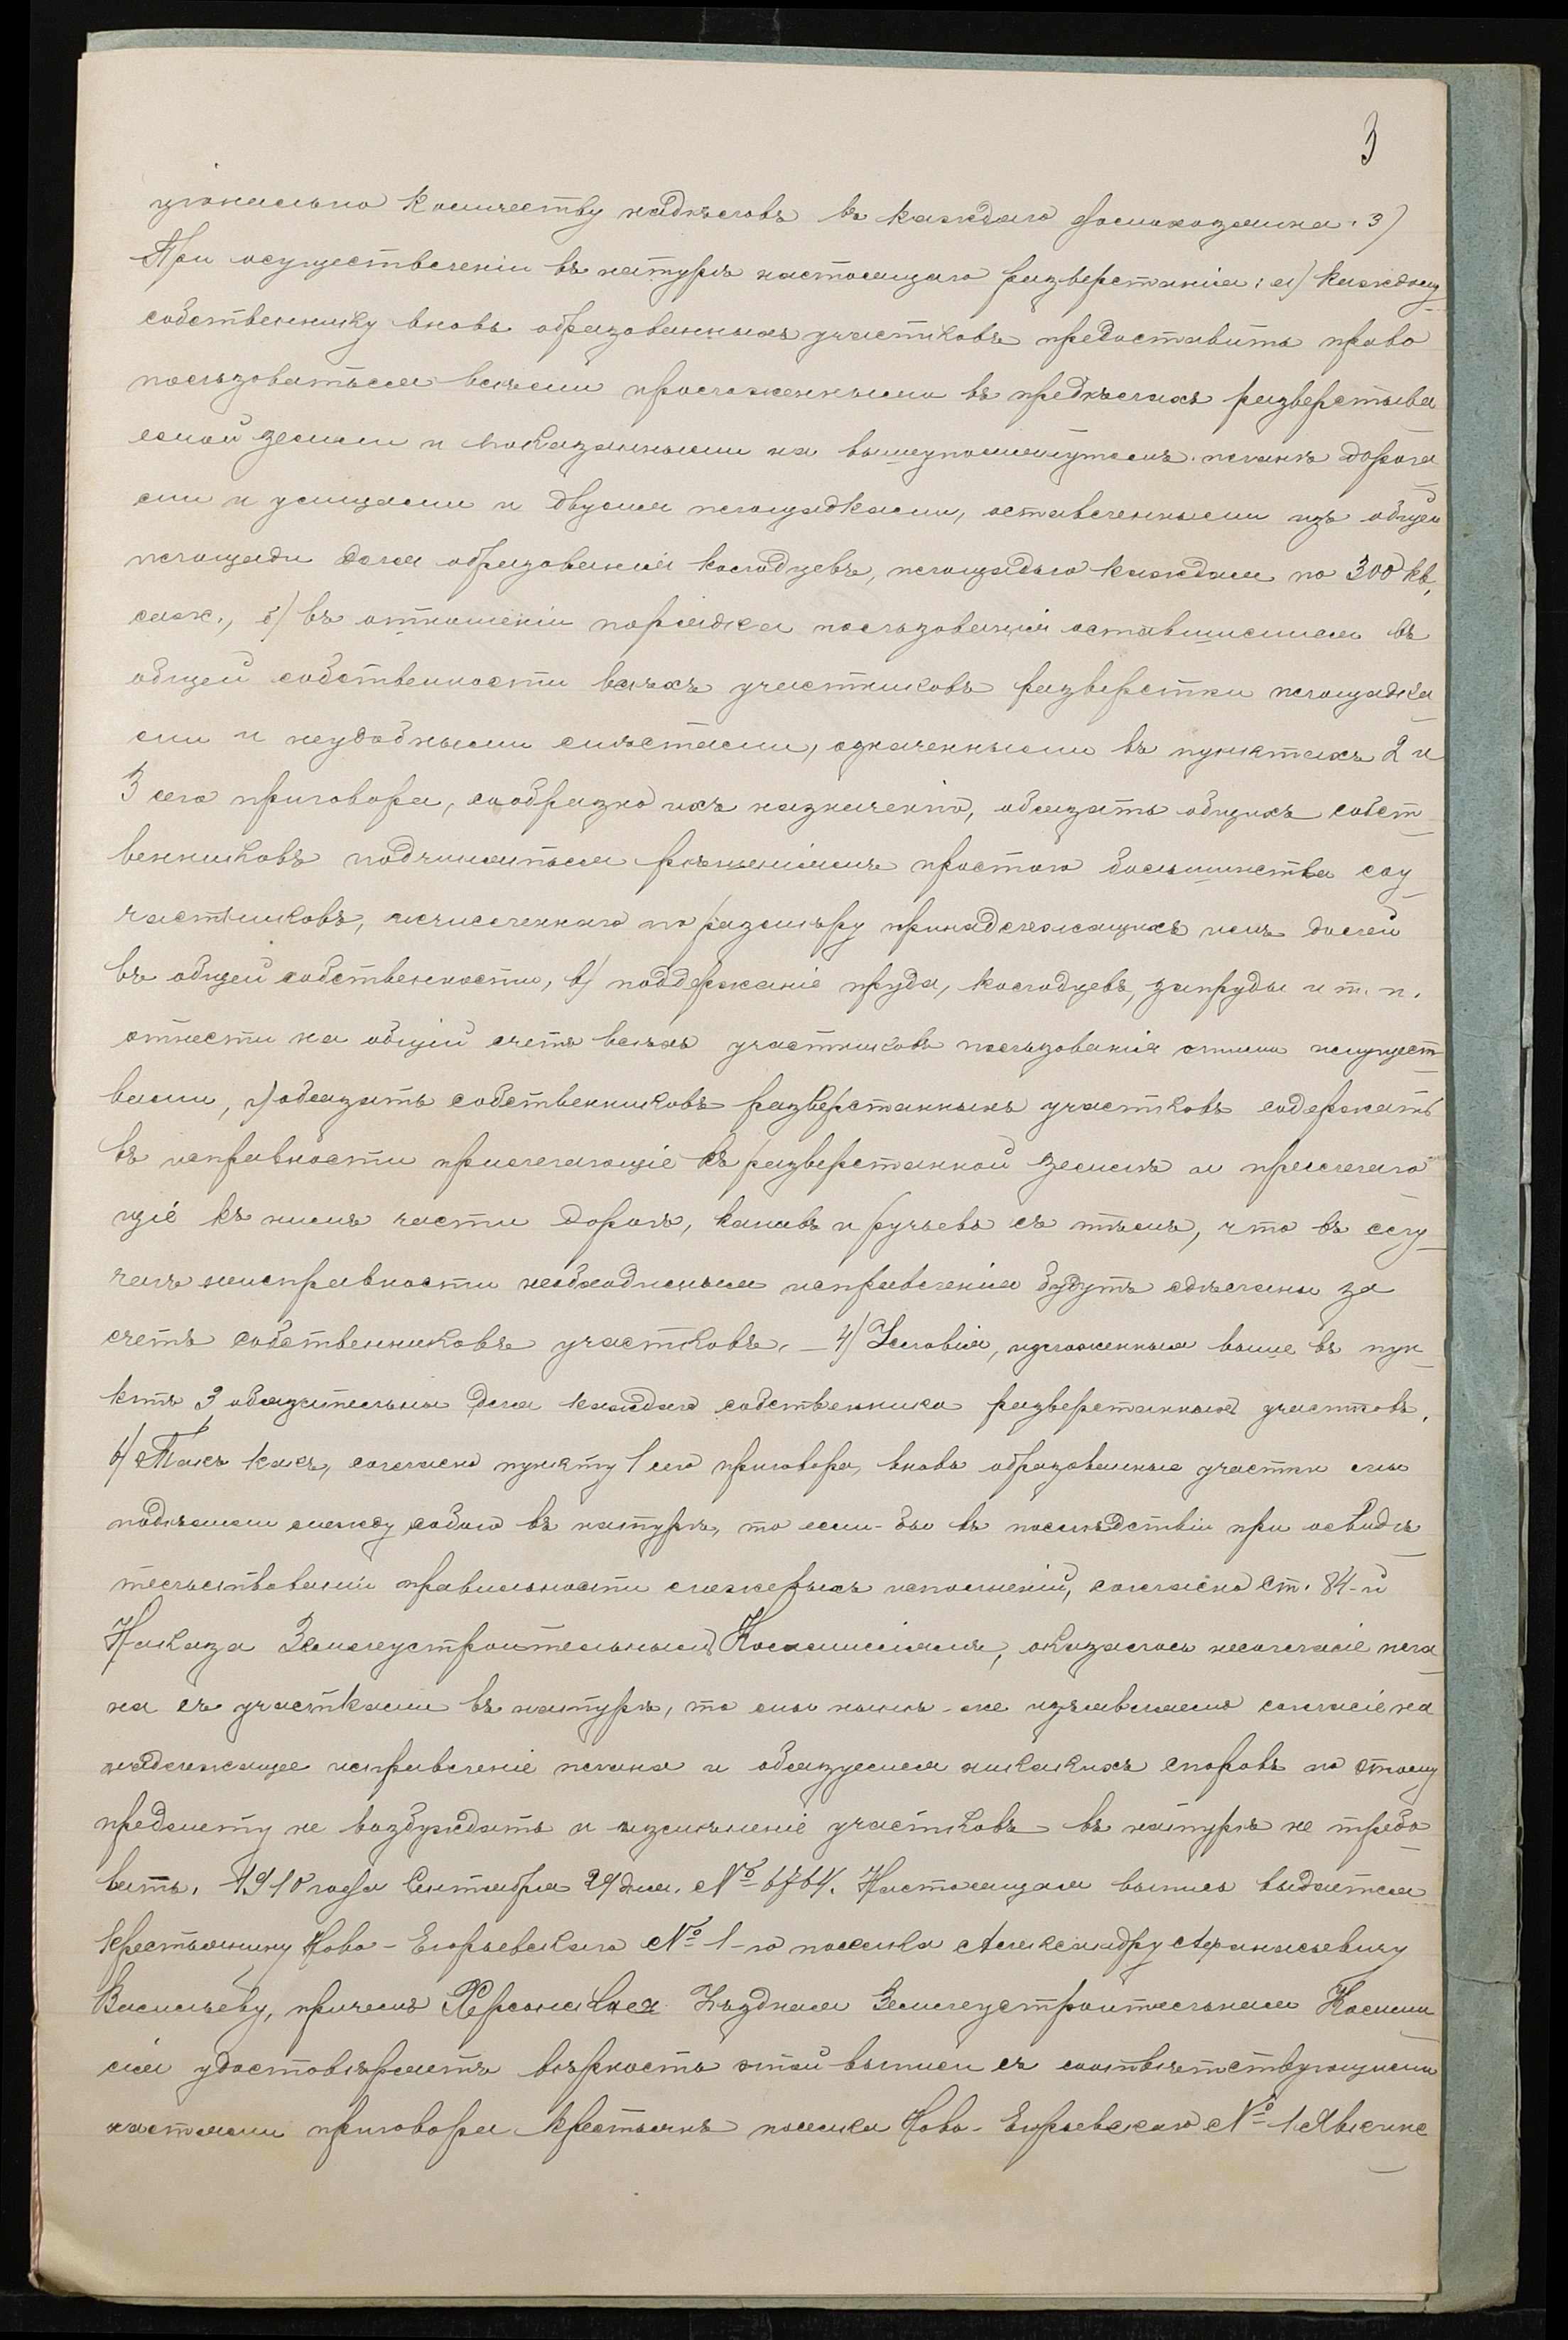 3
ціонально количеству надѣловъ въ каждаго домохозяина. 3)
При осуществленіи въ натурѣ настоящаго разверстанія: а) каждому
собственнику вновь образованныхъ участковъ предоставить право
пользоваться всѣми проложенными въ предѣлахъ разверстыва
емой земли и показанными на вышеупомянутомъ планѣ дорога
ми и улицами и двумя площадками, оставленными изъ общей
площади для образованія колодцевъ, площадью каждая по 300 кв.
саж., б) въ отношеніи порядка пользованія оставшимися въ
общей собственности всѣхъ участниковъ разверстки площадка
ми и неудобными мѣстами, означенными въ пунктахъ 2 и
3 сего приговора, сообразно ихъ назначенію, обязать общихъ собст
венниковъ подчиняться рѣшеніямъ простого большинства соу
частниковъ, исчисленнаго по размѣру принадлежащихъ имъ долей
въ общей собственности, в) поддержаніе пруда, колодцевъ, запруды и т. п.
отнести на общій счетъ всѣхъ участниковъ пользованія этими имущест
вами, г) обязать собственниковъ разверстанныхъ участковъ содержать
въ исправности прилегающіе къ разверстанной землѣ и прилегаю
щіе къ нимъ части дорогъ, канавъ и ручьевъ съ тѣмъ, что въ слу
чаѣ неисправности необходимыя исправленія будутъ сдѣланы за
счетъ собственниковъ участковъ. – 4) Условія, изложенныя выше въ пун
ктѣ 3 обязательны для каждаго собственника разверстанныхъ участковъ.
6) Такъ какъ, согласно пункту 1 сего приговора, вновь образованные участки мы
подѣлили между собою въ натурѣ, то если-бы въ послѣдствіи при освидѣ
тельствованіи правильности межевыхъ исполненій, согласно ст. 84-й
Наказа Землеустроительнымъ Коммиссіямъ, оказалось несогласіе пла
на съ участками въ натурѣ, то мы нынѣ-же изъявляемъ согласіе на
надлежащее исправленіе плана и обязуемся никакихъ споровъ по этому
предмету не возбуждать и измѣненіе участковъ въ натурѣ не требо
вать. 1910 года Сентября 29 дня. № 6764. Настоящая выпись выдается
крестьянину Ново-Егорьевскаго № 1-го поселка Александру Афанасьевичу
Васильеву, причемъ Херсонская Уѣздная Землеустроительная Комми
сія удостовѣряетъ вѣрность этой выписи съ соотвѣтствующими
частями приговора крестьянъ поселка Ново-Егорьевскаго № 1 Явкине